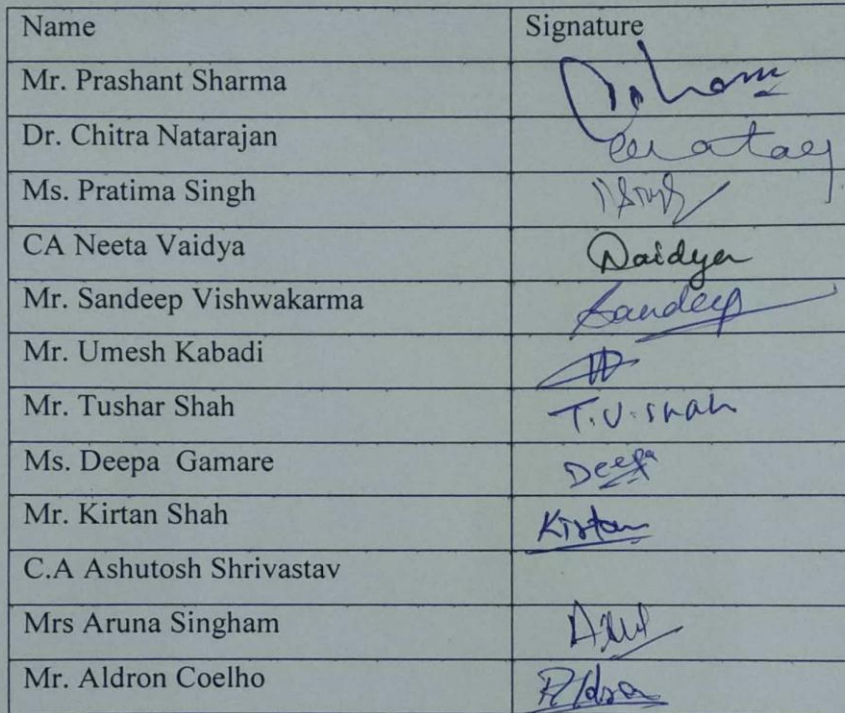 Name Signature
Mr. Prashant Sharma
Dr. Chitra Natarajan
Ms. Pratima Singh
CA Neeta Vaidya
Mr. Sandeep Vishwakarma Sandeep
Mr. Umesh Kabadi
Mr. Tushar Shah T.U.Shah
Ms. Deepa Gamare Deepa
Mr. Kirtan Shah Kirtan
C.A Ashutosh Shrivastav
Mrs Aruna Singham
Mr. Aldron Coelho